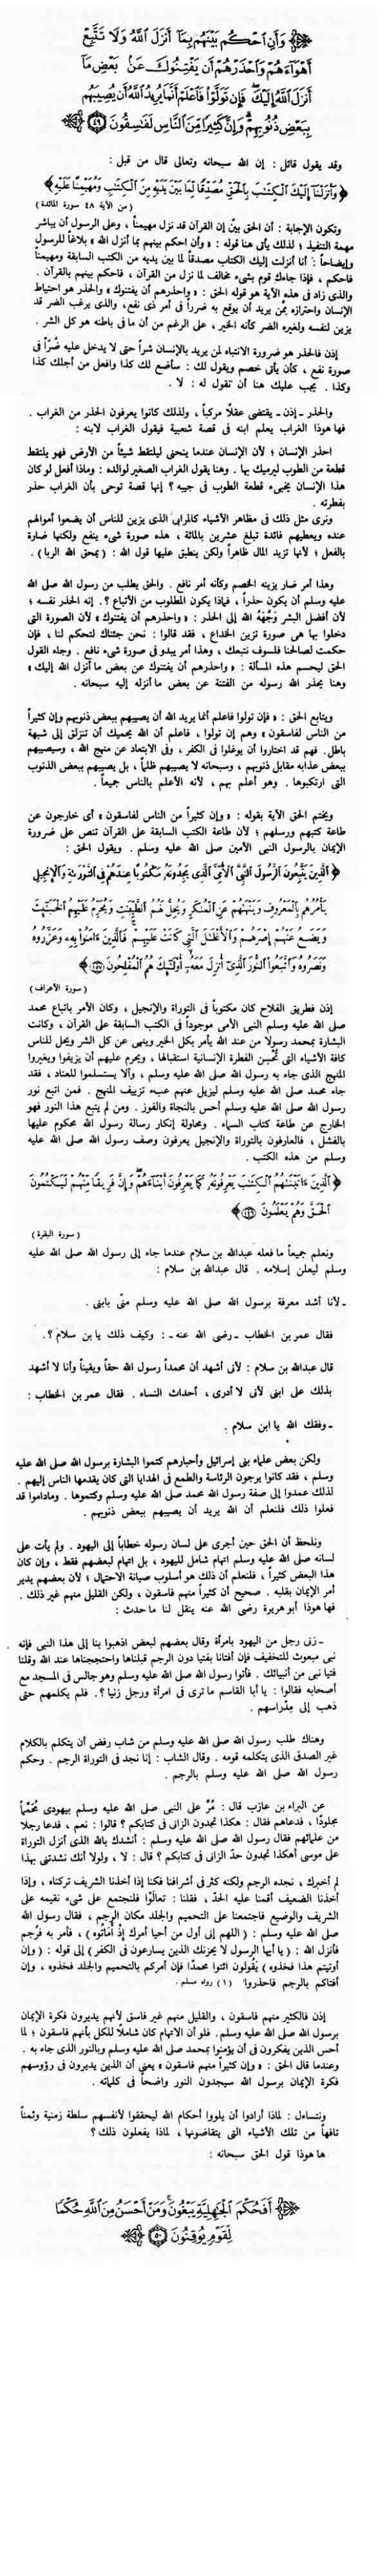 وَأَنِ ٱحْكُم بَيْنَهُم بِمَآ أَنزَلَ ٱللَّهُ وَلَا تَتَّبِعْ
أَهْوَآءَهُمْ وَٱحْذَرْهُمْ أَن يَفْتِنُوكَ عَنۢ بَعْضِ مَآ
أَنزَلَ ٱللَّهُ إِلَيْكَ فَإِن تَوَلَّوْا۟ فَٱعْلَمْ أَنَّمَا يُرِيدُ ٱللَّهُ أَن يُصِيبَهُم
بِبَعْضِ ذُنُوبِهِمْ وَإِنَّ كَثِيرًا مِّنَ ٱلنَّاسِ لَفَٰسِقُونَ ٤٩
وقد يقول قائل : إن الله سبحانه وتعالى قال من قبل :
﴿ وَأَنزَلْنَآ إِلَيْكَ ٱلْكِتَٰبَ بِٱلْحَقِّ مُصَدِّقًا لِّمَا بَيْنَ يَدَيْهِ مِنَ ٱلْكِتَٰبِ وَمُهَيْمِنًا عَلَيْهِ ﴾
( من الآية ٤٨ سورة المائدة )
وتكون الإجابة : أن الحق بيّن إن القرآن قد نزل مهيمناً ، وعلى الرسول أن يباشر
مهمة التنفيذ ؛ لذلك يأتى هنا قوله : « وأن احكم بينهم بما أنزل الله » بلاغاً للرسول
وإيضاحاً : أنا أنزلت إليك الكتاب مصدقاً لما بين يديه من الكتب السابقة ومهيمناً
فاحكم ، فإذا جاءك قوم بشىء مخالف لما نزل من القرآن ، فاحكم بينهم بالقرآن .
والذى زاد فى هذه الآية هو قوله الحق : « واحذرهم أن يفتنوك » والحذر هو احتياط
الإنسان واحترازه ممّن يريد أن يوقع به ضرراً فى أمر ذى نفع ، والذى يرغب الضر قد
يزين لنفسه ولغيره الضر كأنه الخير ، على الرغم من أن ما فى باطنه هو كل الشر .
إذن فالحذر هو ضرورة الانتباه لمن يريد بالإنسان شراً حتى لا يدخل عليه ضُرّاً فى
صورة نفع ، كأن يأتى خصم ويقول لك : سأضع لك كذا وافعل من أجلك كذا
وكذا . يجب عليك هنا أن تقول له : لا .
والحذر ـ إذن ـ يقتضى عقلاً مركباً ، ولذلك كانوا يعرفون الحذر من الغراب .
فها هوذا الغراب يعلم ابنه فى قصة شعبية فيقول الغراب لابنه :
احذر الإنسان ؛ لأن الإنسان عندما ينحنى ليلتقط شيئاً من الأرض فهو يلتقط
قطعة من الطوب ليرميك بها . وهنا يقول الغراب الصغير لوالده : وماذا أفعل لو كان
هذا الإنسان يخبىء قطعة الطوب فى جيبه ؟ إنها قصة توحى بأن الغراب حذر
بفطرته .
ونرى مثل ذلك فى مظاهر الأشياء كالمرابى الذى يزين للناس أن يضعوا أموالهم
عنده ويعطيهم فائدة تبلغ عشرين بالمائة ، هذه صورة شىء ينفع ولكنها ضارة
بالفعل ؛ لأنها تزيد المال ظاهراً ولكن ينطبق عليها قول الله : ( يمحق الله الربا ) .
وهذا أمر ضار يزينه الخصم وكأنه أمر نافع . والحق يطلب من رسول الله صلى الله
عليه وسلم أن يكون حذراً ، فماذا يكون المطلوب من الأتباع ؟ . إنه الحذر نفسه ؛
لأن أفضل البشر وَجَّهَهُ الله إلى الحذر : « واحذرهم أن يفتنوك » لأن الصورة التى
دخلوا بها هى صورة تزين الخداع ، فقد قالوا : نحن جئناك لتحكم لنا ، فإن
حكمت لصالحنا فلسوف نتبعك ، وهذا أمر يبدو فى صورة شىء نافع . وجله القول
الحق ليحسم هذه المسألة : « واحذرهم أن يفتنوك عن بعض ما أنزل الله إليك »
وهنا يحذر الله رسوله من الفتنة عن بعض ما أنزله إليه سبحانه .
ويتابع الحق : « فإن تولوا فاعلم أنما يريد الله أن يصيبهم ببعض ذنوبهم وإن كثيراً
من الناس لفاسقون » وهم إن تولوا ، فاعلم أن الله يحميك أن تنزلق إلى شبهة
باطل. فهم قد اختاروا أن يوغلوا فى الكفر ، وفى الابتعاد عن منهج الله ، وسيصيبهم
ببعض عذابه مقابل ذنوبهم ، وسبحانه لا يصيبهم ظلماً ، بل يصيبهم ببعض الذنوب
التى ارتكبوها . وهو أعلم بهم ، لأنه الأعلم بالناس جميعاً .
ويختم الحق الآية بقوله : « وإن كثيراً من الناس لفاسقون » أى خارجون عن
طاعة كتبهم ورسلهم ؛ لأن طاعة الكتب السابقة على القرآن تنص على ضرورة
الإيمان بالرسول النبى الأمين صلى الله عليه وسلم . ويقول الحق :
﴿ ٱلَّذِينَ يَتَّبِعُونَ ٱلرَّسُولَ ٱلنَّبِىَّ ٱلْأُمِّىَّ ٱلَّذِى يَجِدُونَهُۥ مَكْتُوبًا عِندَهُمْ فِى ٱلتَّوْرَىٰةِ وَٱلْإِنجِيلِ
يَأْمُرُهُم بِٱلْمَعْرُوفِ وَيَنْهَىٰهُمْ عَنِ ٱلْمُنكَرِ وَيُحِلُّ لَهُمُ ٱلطَّيِّبَٰتِ وَيُحَرِّمُ عَلَيْهِمُ ٱلْخَبَٰٓئِثَ
وَيَضَعُ عَنْهُمْ إِصْرَهُمْ وَٱلْأَغْلَٰلَ ٱلَّتِى كَانَتْ عَلَيْهِمْ فَٱلَّذِينَ ءَامَنُوا۟ بِهِۦ وَعَزَّرُوهُ
وَنَصَرُوهُ وَٱتَّبَعُوا۟ ٱلنُّورَ ٱلَّذِىٓ أُنزِلَ مَعَهُۥٓ أُو۟لَٰٓئِكَ هُمُ ٱلْمُفْلِحُونَ ١٥٧ ﴾
( سورة الأعراف )
إذن فطريق الفلاح كان مكتوباً فى التوراة والإنجيل ، وكان الأمر باتباع محمد
صلى الله عليه وسلم النبى الأمى موجوداً فى الكتب السابقة على القرآن ، وكانت
البشارة بمحمد رسولا من عند الله يأمر بكل الخير وينهى عن كل الشر ويحل للناس
كافة الأشياء التى تُحْسِن الفطرة الإنسانية استقبالها ، ويحرم عليهم أن يزيفوا ويغيروا
المنهج الذى جاء به رسول الله صلى الله عليه وسلم ، وألا يستسلموا للعناد ، فقد
جاء محمد صلى الله عليه وسلم ليزيل عنهم عبء تزييف المنهج . فمن اتبع نور
رسول الله صلى الله عليه وسلم أحس بالنجاة والفوز . ومن لم يتبع هذا النور فهو
الخارج عن طاعة كتاب السماء . ومحاولة إنكار رسالة رسول الله محكوم عليها
بالفشل ، فالعارفون بالتوراة والإنجيل يعرفون وصف رسول الله صلى الله عليه
وسلم من هذه الكتب .
﴿ ٱلَّذِينَ ءَاتَيْنَٰهُمُ ٱلْكِتَٰبَ يَعْرِفُونَهُۥ كَمَا يَعْرِفُونَ أَبْنَآءَهُمْ وَإِنَّ فَرِيقًا مِّنْهُمْ لَيَكْتُمُونَ
ٱلْحَقَّ وَهُمْ يَعْلَمُونَ ١٤٦ ﴾
( سورة البقرة )
ونعلم جميعاً ما فعله عبدالله بن سلام عندما جاء إلى رسول الله صلى الله عليه
وسلم ليعلن إسلامه . قال عبدالله بن سلام :
ـ لأنا أشد معرفة برسول الله صلى الله عليه وسلم منّى بابنى .
فقال عمر بن الخطاب ـ رضى الله عنه ـ : وكيف ذلك يا بن سلام ؟ .
قال عبدالله بن سلام : لأنى أشهد أن محمداً رسول الله حقاً ويقيناً وأنا لا أشهد
بذلك على ابنى لأنى لا أدرى ، أحداث النساء . فقال عمر بن الخطاب :
ـ وفقك الله يا ابن سلام .
ولكن بعض علماء بنى إسرائيل وأحبارهم كتموا البشارة برسول الله صلى الله عليه
وسلم ، فقد كانوا يرجون الرئاسة والطمع فى الهدايا التى كان يقدمها الناس إليهم .
لذلك عمدوا إلى صفة رسول الله محمد صلى الله عليه وسلم وكتموها . وماداموا قد
فعلوا ذلك فلنعلم أن الله يريد أن يصيبهم ببعض ذنوبهم .
ونلحظ أن الحق حين أجرى على لسان رسوله خطاباً إلى اليهود . ولم يأت على
لسانه صلى الله عليه وسلم اتهام شامل لليهود ، بل اتهام لبعضهم فقط ، وإن كان
هذا البعض كثيراً ، فلنعلم أن ذلك هو أسلوب صيانة الاحتمال ؛ لأن بعضهم يدير
أمر الإيمان بقلبه . صحيح أن كثيراً منهم فاسقون ، ولكن القليل منهم غير ذلك .
فها هوذا أبو هريرة رضى الله عنه ينقل لنا ما حدث :
ـ زنى رجل من اليهود بامرأة وقال بعضهم لبعض اذهبوا بنا إلى هذا النبى فإنه
نبى مبعوث للتخفيف فإن أفتانا بفتيا دون الرجم قبلناها واحتججنا بها عند الله وقلنا
فتيا نبى من أنبيائك . فأتوا رسول الله صلى الله عليه وسلم وهو جالس فى المسجد مع
أصحابه فقالوا : يا أبا القاسم ما ترى فى امرأة ورجل زنيا ؟ . فلم يكلمهم حتى
ذهب إلى مِدْراسهم .
وهناك طلب رسول الله صلى الله عليه وسلم من شاب رفض أن يتكلم بالكلام
غير الصدق الذى يتكلمه قومه . وقال الشاب : إنا نجد فى التوراة الرجم . وحكم
رسول الله صلى الله عليه وسلم بالرجم .
عن البراء بن عازب قال : مُرَّ على النبى صلى الله عليه وسلم بيهودى مُحَمَّماً
مجلودًا ، فدعاهم فقال : هكذا تجدون الزانى فى كتابكم ؟ قالوا : نعم ، فدعا رجلا
من علمائهم فقال رسول الله صلى الله عليه وسلم : أنشدك بالله الذى أنزل التوراة
على موسى أهكذا تجدون حدّ الزانى فى كتابكم ؟ قال : لا ، ولولا أنك نشدتنى بهذا
لم أخبرك ، نجده الرجم ولكنه كثر فى أشرافنا فكنا إذا أخذنا الشريف تركناه ، وإذا
أخذنا الضعيف أقمنا عليه الحدّ ، فقلنا : تعالَوْا فلنجتمع على شىء نقيمه على
الشريف والوضيع فاجتمعنا على التحميم والجلد مكان الرجم ، فقال رسول الله
صلى الله عليه وسلم : ( اللهم إنى أول من أحيا أمرك إذْ أَمَاتُوه ) ، فأمر به فرُجم
فأنزل الله : ( يا أيها الرسول لا يحزنك الذين يسارعون فى الكفر ) إلى قوله : ( وإن
أوتيتم هذا فخذوه ) يَقُولون ائتوا محمدًا فإن أمركم بالتحميم والجلد فخذوه ، وإن
أفتاكم بالرجم فاحذروا (١) رواه مسلم .
إذن فالكثير منهم فاسقون ، والقليل منهم غير فاسق لأنهم يديرون فكرة الإيمان
برسول الله صلى الله عليه وسلم . فلو أن الاتهام كان شاملًا للكل بأنهم فاسقون ؛ لما
أحس الذين يفكرون فى أن يؤمنوا بمحمد صلى الله عليه وسلم وبالنور الذى جاء به .
وعندما قال الحق : « وإن كثيراً منهم فاسقون » يعنى أن الذين يديرون فى رؤوسهم
فكرة الإيمان برسول الله سيجدون النور واضحاً فى كلماته .
ونتساءل : لماذا أرادوا أن يلووا أحكام الله ليحققوا لأنفسهم سلطة زمنية وثمناً
تافهاً من تلك الأشياء التى يتقاضونها ، لماذا يفعلون ذلك ؟
ها هوذا قول الحق سبحانه :
أَفَحُكْمَ ٱلْجَٰهِلِيَّةِ يَبْغُونَ وَمَنْ أَحْسَنُ مِنَ ٱللَّهِ حُكْمًا
لِّقَوْمٍ يُوقِنُونَ ٥٠